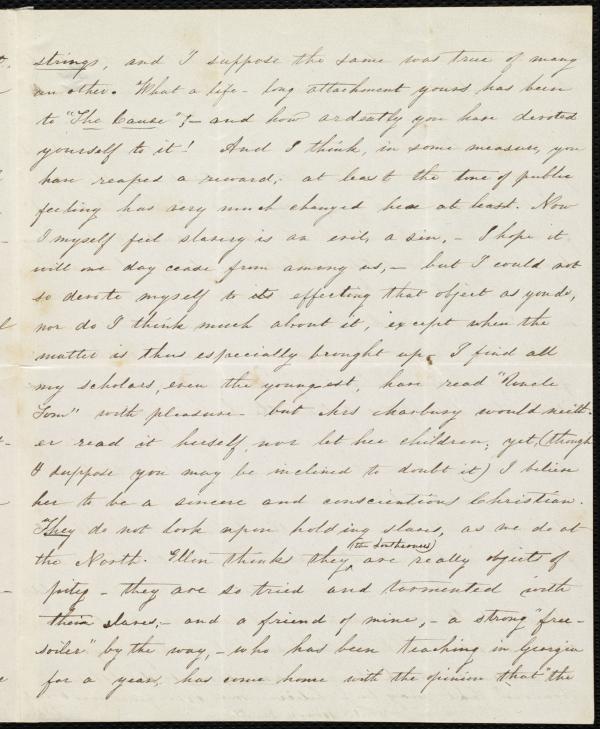 strings, and I suppose the same was true of many
an other. What a life-long attachment yours has been
to "The Cause"! - and how ardently you have devoted
yourself to it! And I think, in some measure, you
have reaped a reward; at least the tone of public
feeling has very much changed here at least. Now
I myself feel slavery is an evil, a sin, - I hope it
will one day cease from among us, - but I could not
so devote myself to its effecting that object as yonds,
nor do I think much about it, except when the
matter is thus especially brought up. I find all
my scholars, even the youngest, have read "Uncle
Tom" with pleasure - but Mrs would neith-
er read it herself, nor let her children; yet, (though
I suppose you may be inclined to doubt it) I believe
her to be a sincere and conscientious Christian.
They do not look upon holding slaves, as we do at
the North. Ellen thinks they (the Southerners) are really objects of
pity - they are so tried and tormented with
their slaves; - and a friend of mine, - a strong "free-
soiler" by the way, - who has been teaching in Georgia
for a year, has come home with the opinion that "the